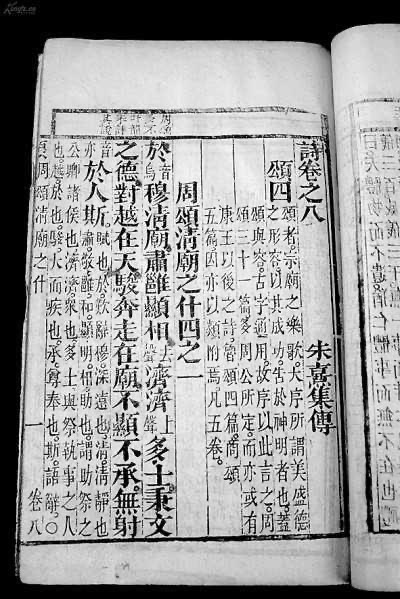 詩卷之八　朱熹集傳
頌四
頌者宗廟之樂歌大序所謂美盛德
之形容以其成功告於神明者也蓋
頌與容古字通用故序以此言之周
頌三十一篇多周公所定而亦或有
康王以後之詩魯頌四篇商頌
五篇因亦以類附焉凡五卷
周頌清廟之什四之一
於音烏穆清廟肅雝顯相去聲濟濟上聲多士秉文
之德對越在天駿奔走在廟不顯不承無射
音亦於人斯
賦也於歎辭穆深遠也清清靜也
肅敬雝和顯明相助也謂助祭之
公卿諸侯也濟濟眾也多士與祭執事之人
也越於也駿大而疾也承尊奉也斯語辭○
周頌清廟之什　一　卷八